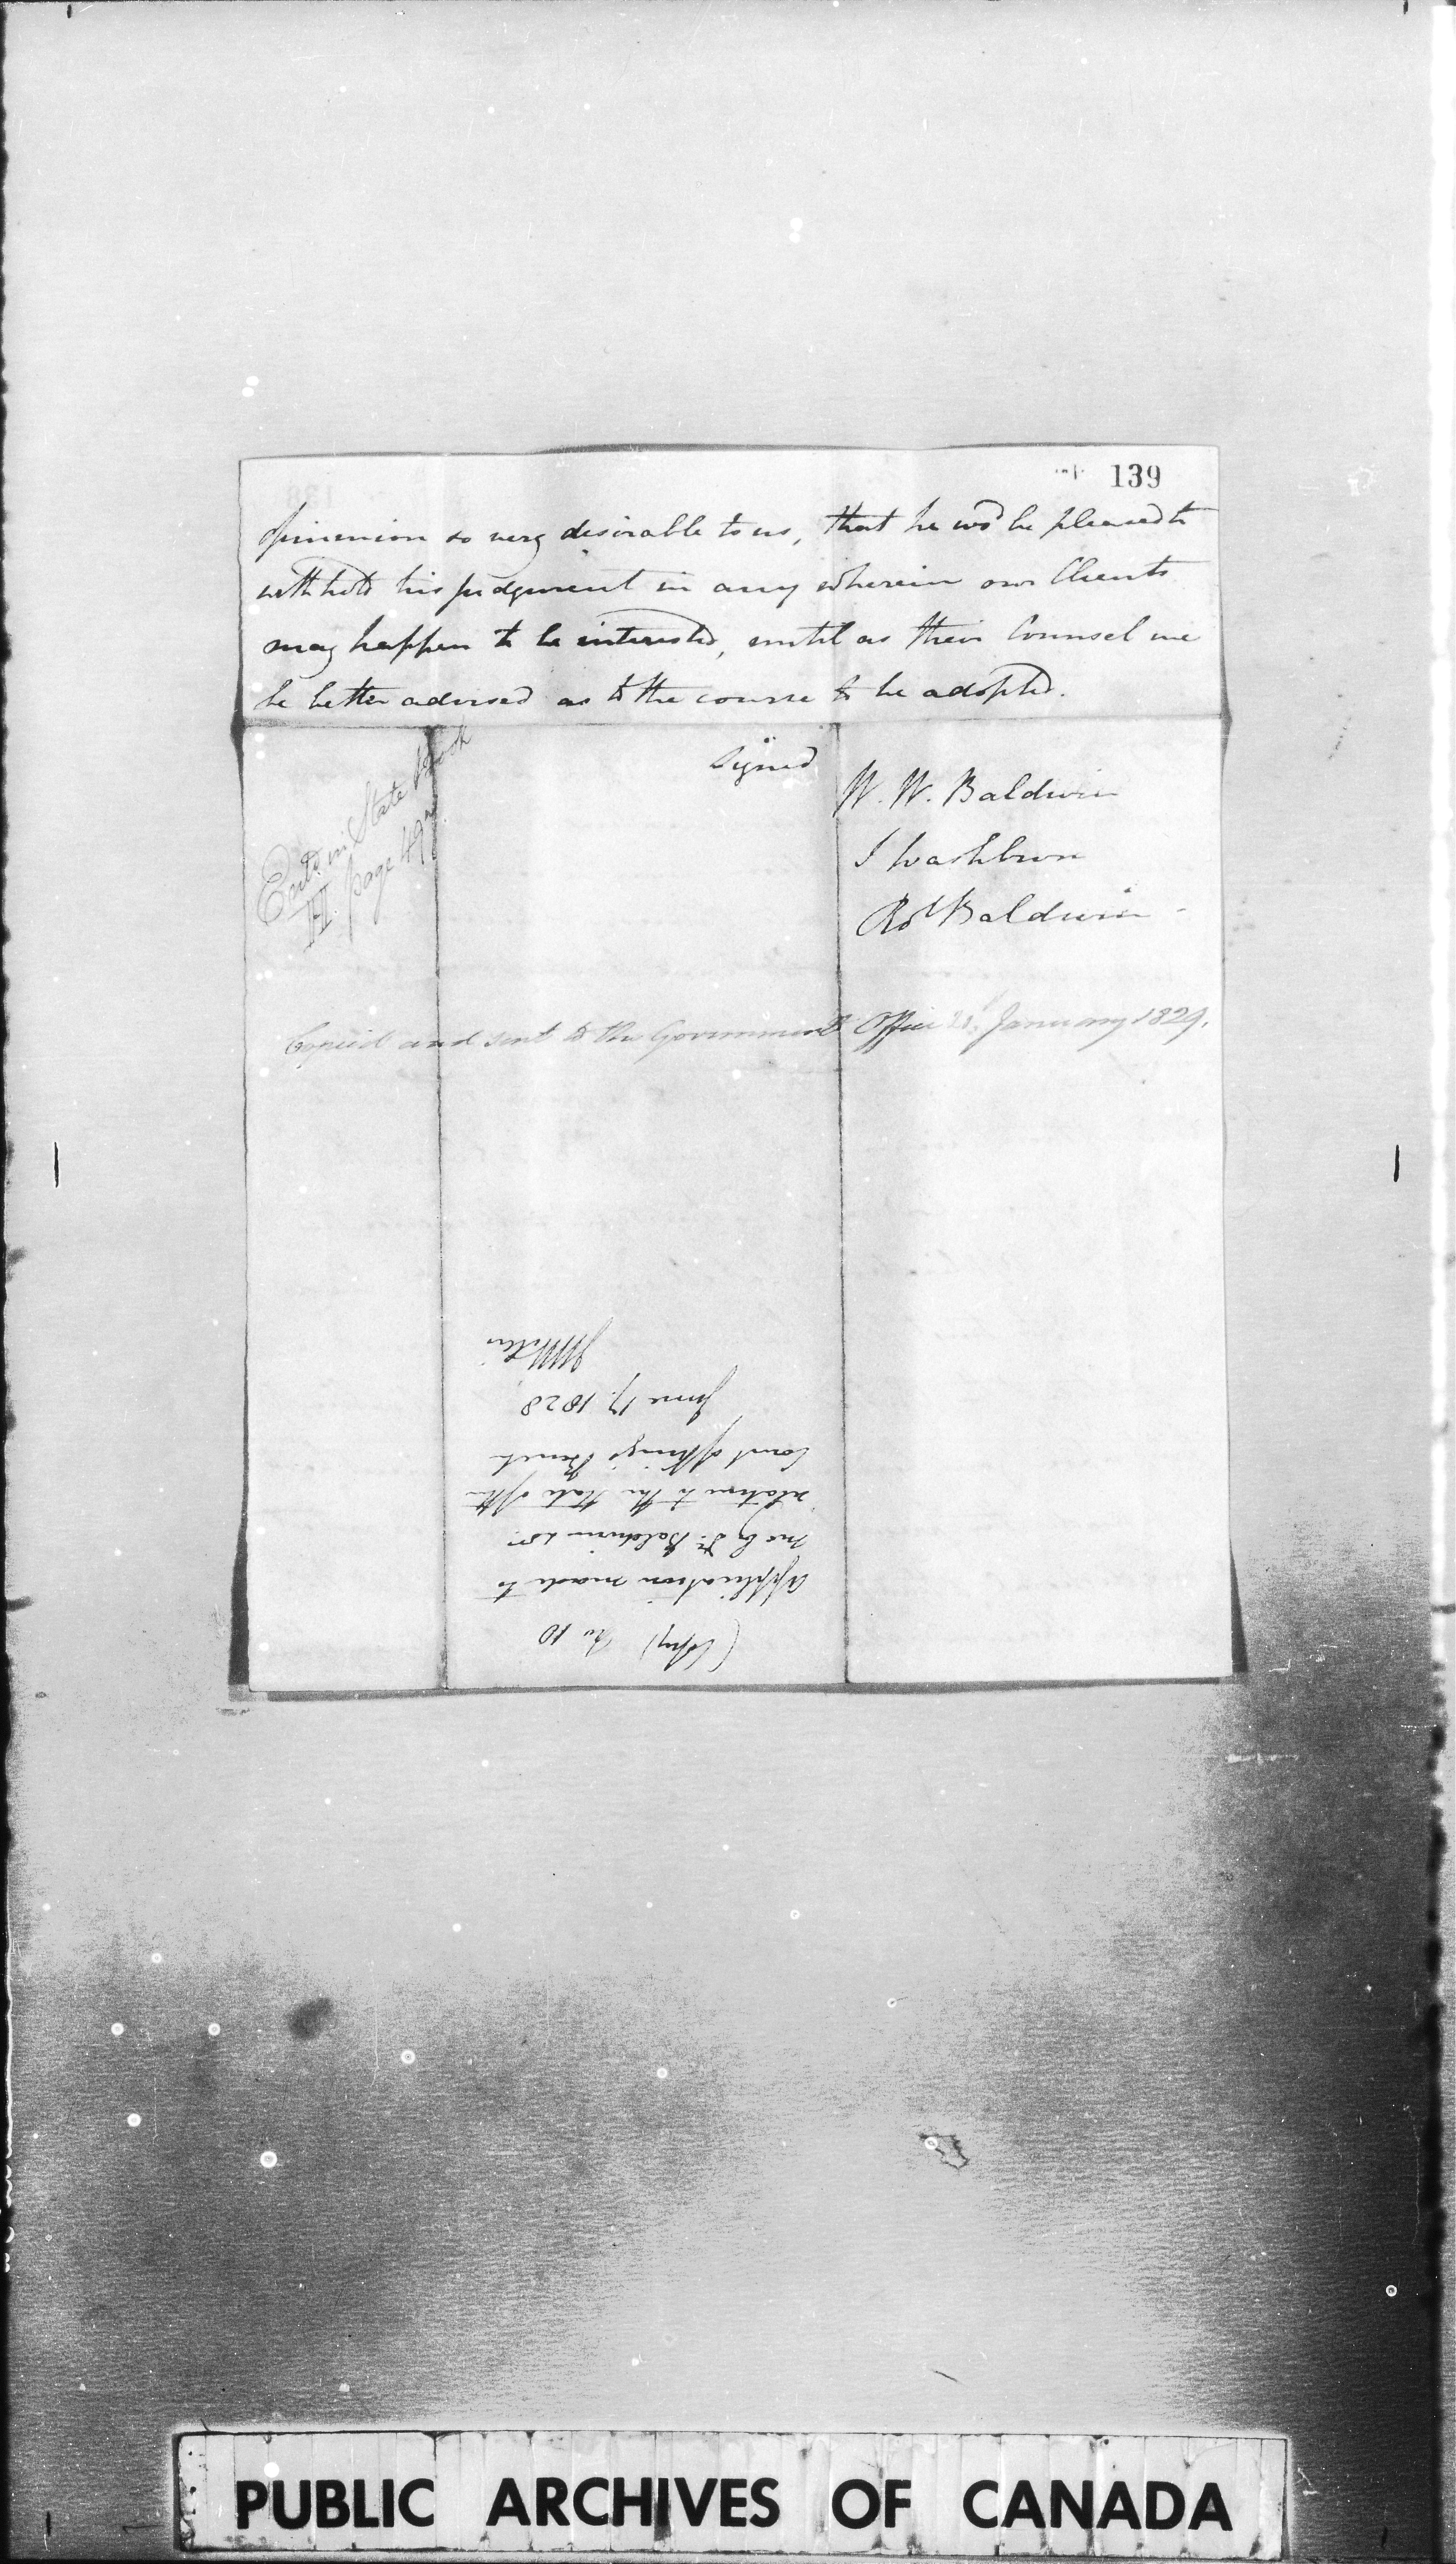 139
opinion so very desirable to us, that he wod be pleased to
withhold his judgment in any wherein our Clients
may happen to be interested, until as their Counsel we
be better advised as to the course to be adopted.
Signed
W. W. Baldwin
S Washburn
Robt Baldwin -
Entd. in State Book
page 49
Copied and sent to the Government Office January 1829.
(Copy) No 10
Application made to
me by Dr. Baldwin &c.
relative to the State of the
Court of King's Bench
June 17. 1828
J W Willis
PUBLIC ARCHIVES OF CANADA